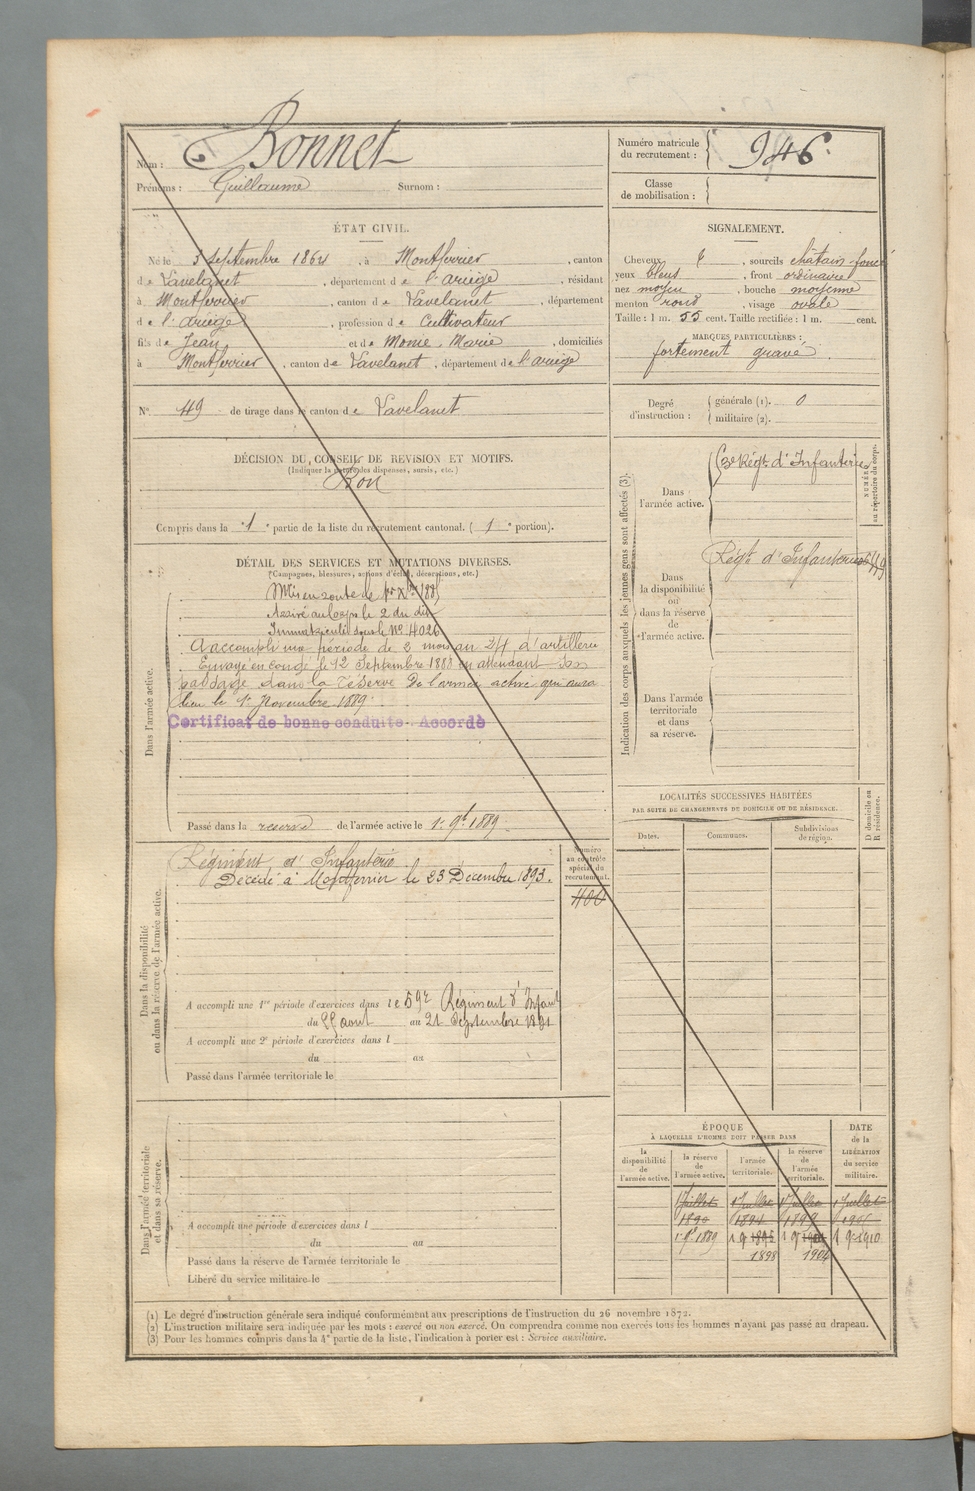 Nom : Bonnet
Prénoms : Guillaume Surnom :
Numéro matricule du recrutement : 946
Classe de mobilisation :
ÉTAT CIVIL.
Né le 3 septembre 1864, à Montferrier, canton
de Lavelanet, département de l'ariège, résidant
à Montferrier, canton de Lavelanet, département
de l'ariège, profession de Cultivateur
fils de Jean et de Monié, Marie, domiciliés
à Montferrier, canton de Lavelanet, département de l'ariège
N° 49 de tirage dans le canton de Lavelanet
SIGNALEMENT.
Cheveux, sourcils châtain-foncé
yeux bleus, front ordinaire
nez moyen, bouche moyenne
menton rond, visage ovale
Taille : 1 m. 55 cent. Taille rectifiée : 1 m. cent.
MARQUES PARTICULIÈRES :
fortement gravé
Degré d'instruction : générale (1). 0
militaire (2).
DÉCISION DU CONSEIL DE REVISION ET MOTIFS.
(Indiquer la nature des dispenses, sursis, etc.)
Bon
Compris dans la 1e partie de la liste du recrutement cantonal. ( 1e portion).
DÉTAIL DES SERVICES ET MUTATIONS DIVERSES.
(Campagnes, blessures, actions d'éclat, décorations, etc.)
Dans l'armée active.
Mis en route le 1er Xbre 1885
Arrivé au corps le 2 du dit
Immatriculé sous le N° 4026
A accompli une période de 2 mois au d'artillerie
Envoyé en congé le 12 Septembre 1888 en attendant son
passage dans la réserve de l'armée active qui aura
lieu le 1er Novembre 1889.
Certificat de bonne conduite Accordé
Passé dans la reserve de l'armée active le 1er 9bre 1889.
Indication des corps auxquels les jeunes gens sont affectés (3).
Dans l'armée active.
3e Régt d'Infanterie
NUMÉRO au répertoire du corps.
Dans la disponibilité ou dans la réserve de l'armée active.
Régt d'Infanterie
Dans l'armée territoriale et dans sa réserve.
LOCALITÉS SUCCESSIVES HABITÉES
PAR SUITE DE CHANGEMENTS DE DOMICILE OU DE RÉSIDENCE.
Dates. Communes. Subdivisions de région. D domicile ou R résidence.
Dans la disponibilité ou dans la réserve de l'armée active.
Numéro au contrôle spécial du recrutement.
400
Régiment d'Infanterie
Décédé à Montferrier le 23 Décembre 1893.
A accompli une 1re période d'exercices dans le 59e Régiment d'Infant
du 25 aout au 21 Septembre 1891
A accompli une 2e période d'exercices dans l
du au
Passé dans l'armée territoriale le
Dans l'armée territoriale et dans sa réserve.
A accompli une période d'exercices dans l
du au
Passé dans la réserve de l'armée territoriale le
Libéré du service militaire le
ÉPOQUE
À LAQUELLE L'HOMME DOIT PASSER DANS
DATE de la LIBÉRATION du service militaire.
la disponibilité de l'armée active. la réserve de l'armée active. l'armée territoriale. la réserve de l'armée territoriale.
1 Juillet 1 Juillet 1 Juillet 1 Juillet
1890
1er 9bre 1889 1 9 1 9 1 9 1910
1898 1904
(1) Le degré d'instruction générale sera indiqué conformément aux prescriptions de l'instruction du 26 novembre 1872.
(2) L'instruction militaire sera indiquée par les mots : exercé ou non exercé. On comprendra comme non exercés tous les hommes n'ayant pas passé au drapeau.
(3) Pour les hommes compris dans la 4e partie de la liste, l'indication à porter est : Service auxiliaire.